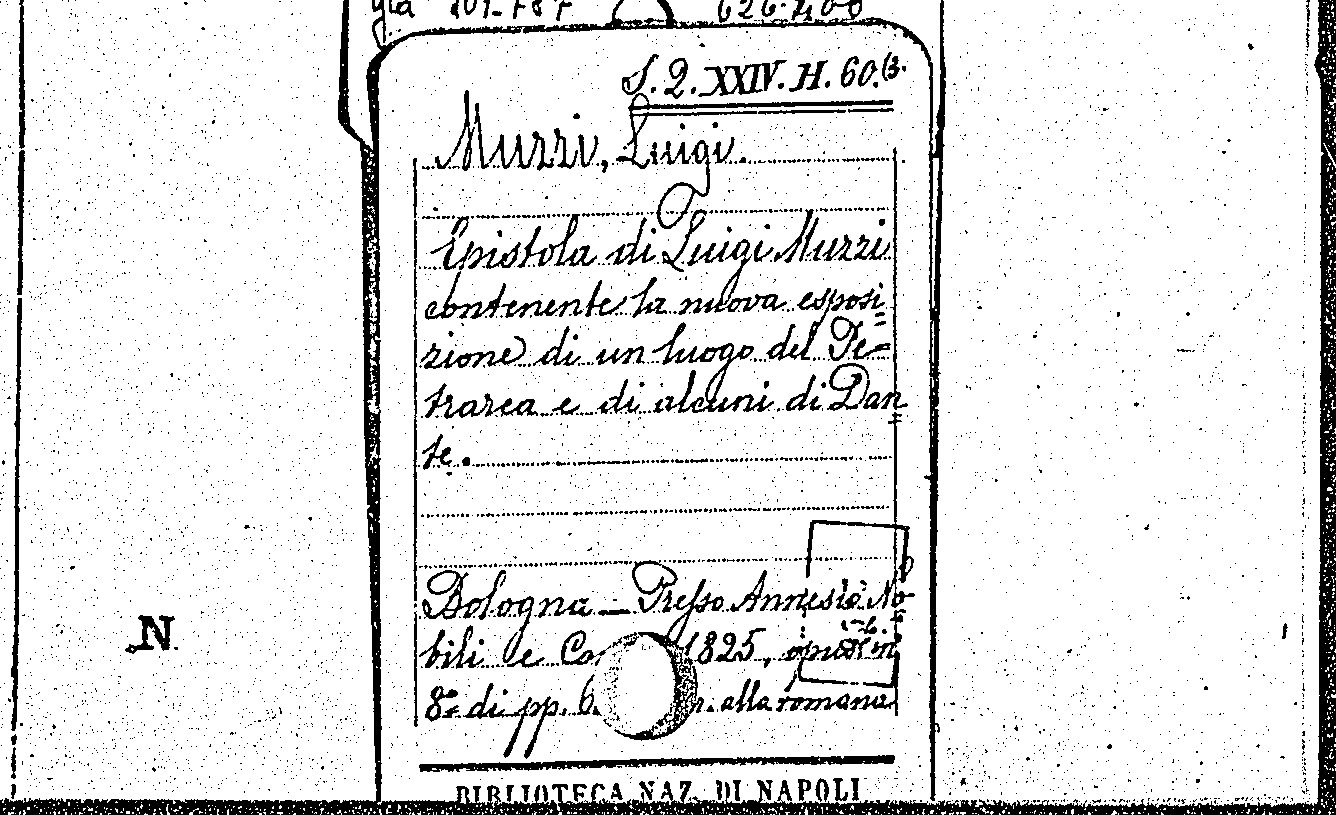 S. Q. XXIV. H. 60.(3.
Muzzi, Luigi.
Epistola di Luigi Muzzi
contenente la nuova esposi=
zione di un luogo del Pe=
trarca e di alcuni di Dan=
te.
Bologna — Presso Annesio No-
bili e 1825,
8º di pp. alla romana
N
BIBLIOTECA NAZ. DI NAPOLI